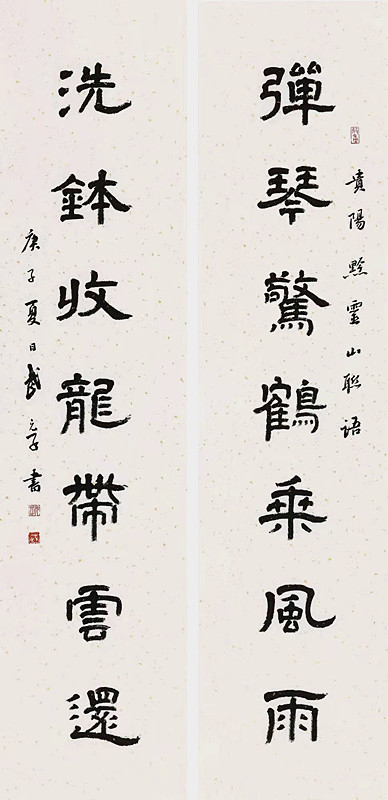 彈琴驚鶴乘風雨
貴陽黔靈山聯語
洗鉢收龍帶雲還
庚子夏日武元子書